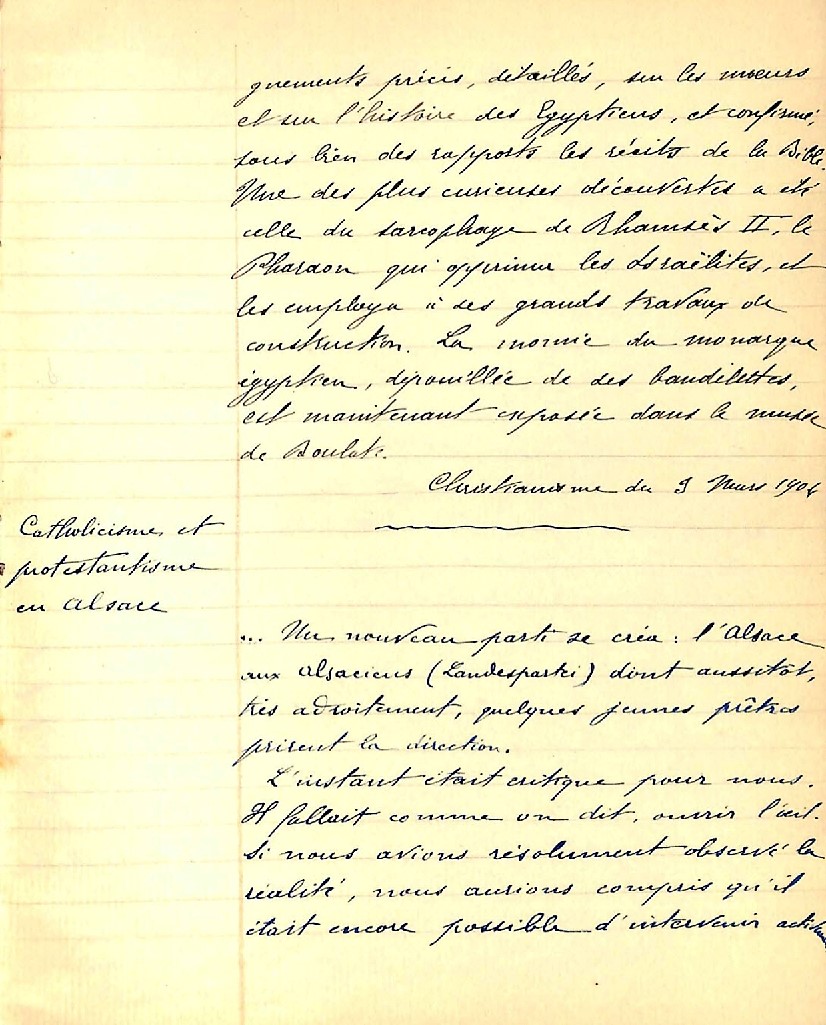 gnements précis, détaillés, sur les moeurs
et sur l'histoire des Egyptiens, et confirmé,
sous bien des rapports les récits de la Bible.
Une des plus curieuses découvertes a été
celle du sarcophage de Rhamsès II, le
Pharaon qui opprima les Israëlites, et
les employa à ses grands travaux de
construction. La momie du monarque
égyptien, dépouillée de ses bandelettes,
est maintenant exposée dans le musée
de Boulak.
Christianisme du 9 Mars
Catholicisme et
protestantisme
en Alsace
... Un nouveau parti se créa : l'Alsace
aux Alsaciens (Landespartei) dont aussitôt,
très adroitement, quelques jeunes prêtres
prirent la direction.
L'instant était critique pour nous.
Il fallait comme on dit, ouvrir l'oeil.
Si nous avions résolument observé la
réalité, nous aurions compris qu'il
était encore possible d'intervenir